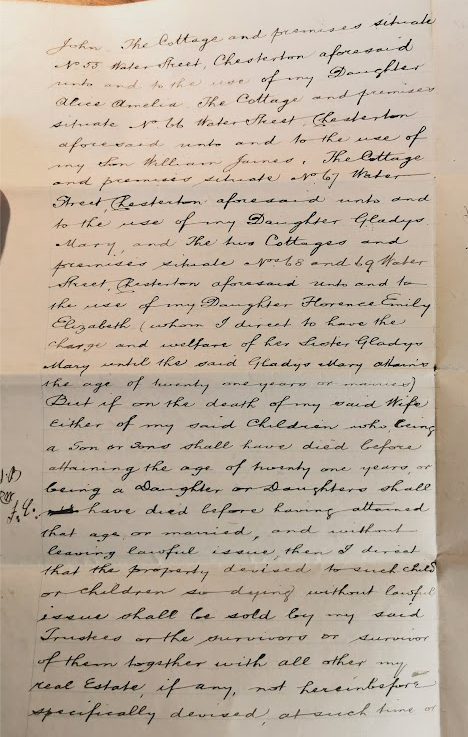 John. The Cottage and premises situate
No 55 Water Street, Chesterton aforesaid
unto and to the use of my Daughter
Alice Amelia. The Cottage and premises
situate No 66 Water Street, Chesterton
aforesaid unto and to the use of
my Son William James. The Cottage
and premises situate No 67 Water
Street, Chesterton aforesaid unto and
to the use of my Daughter Gladys
Mary, and The two Cottages and
premises situate Nos 68 and 69 Water
Street, Chesterton aforesaid unto and to
the use of my Daughter Florence Emily
Elizabeth (whom I direct to have the
charge and welfare of her Sister Gladys
Mary until the said Gladys Mary attains
the age of twenty one years or marries)
But if on the death of my said Wife
Either of my said Children who being
a Son or Sons shall have died before
attaining the age of twenty one years, or
being a Daughter or Daughters shall
have died before having attained
that age, or married, and without
leaving lawful issue, then I direct
that the property devised to such child
or children so dying without lawful
issue shall be sold by my said
Trustees or the survivors or survivor
of them together with all other my
real Estate, if any, not hereinbefore
specifically devised, at such time or